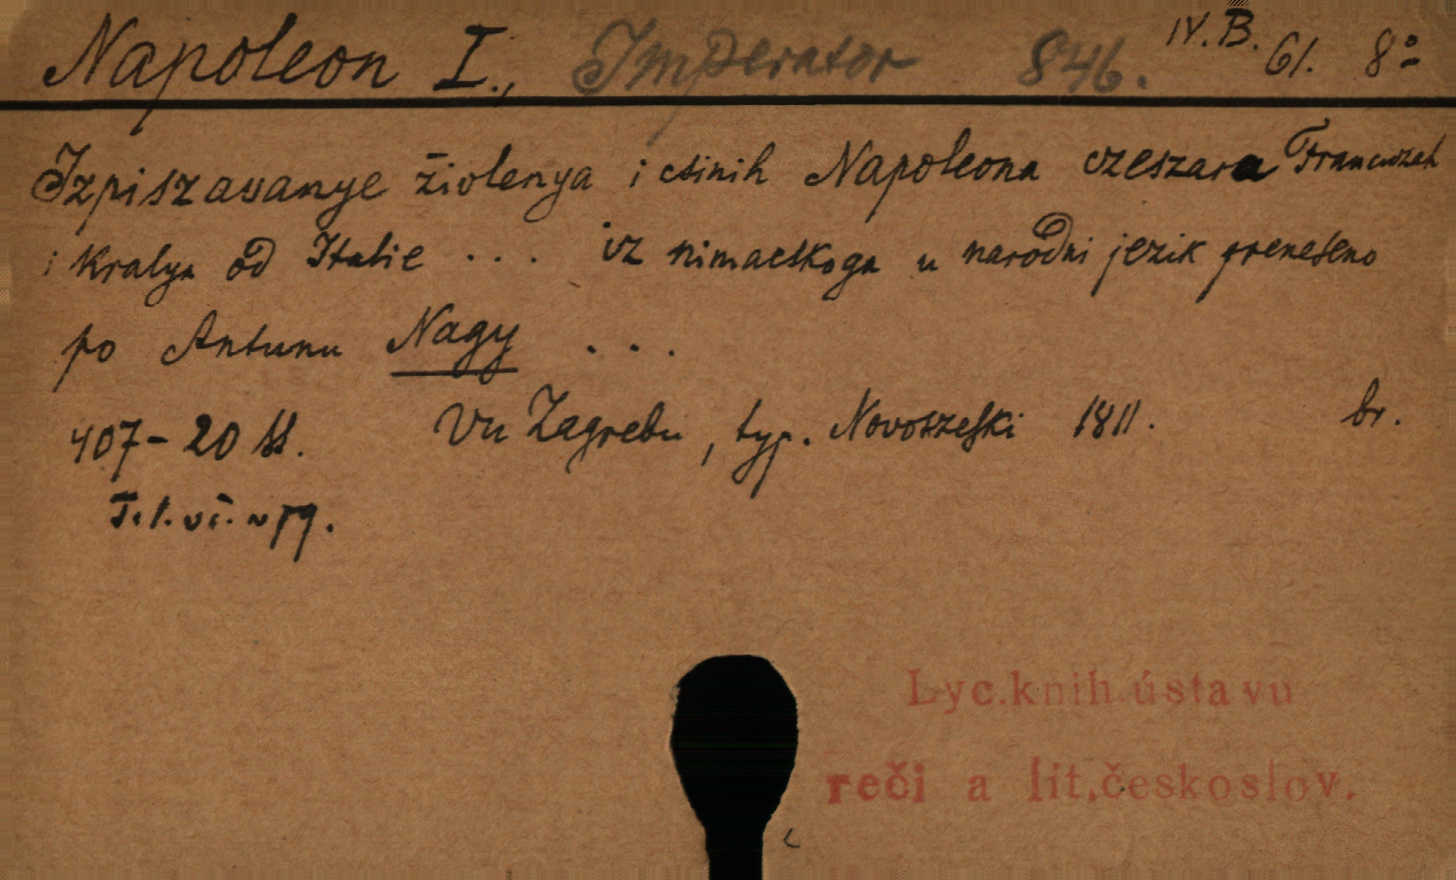 Napoleon I., Imperator 846. IV.B. 61. 8º
Izpiszavanye živlenya i csinih Napoleona czeszara Franczuzah
i kralya od Italie ... iz nimacskoga u narodni jezik preneseno
po Antunu Nagy ...
407-20 ss. Vu Zagrebu, typ. Novoszelski 1811. br.
Lyc.knih.ústavu
reči a lit.českoslov.